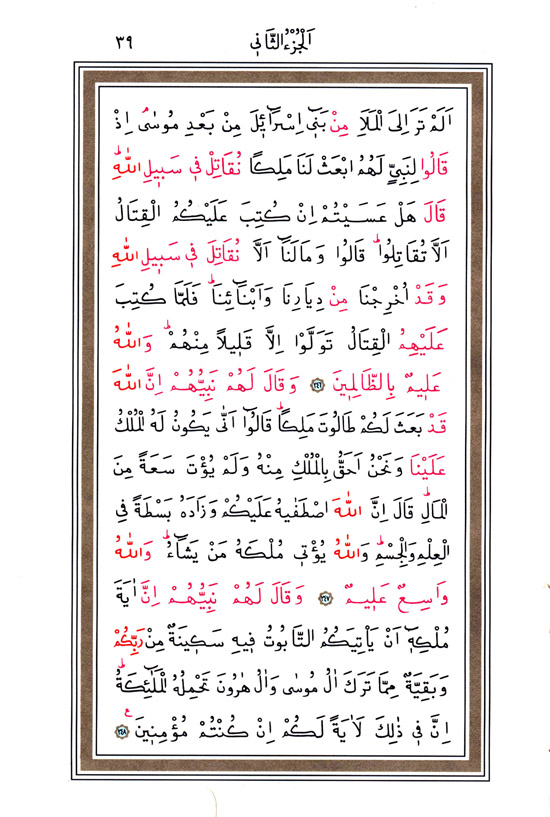 اَلْجُزْءُ الثَّانٖي ٣٩
اَلَمْ تَرَ اِلَى الْمَلَاِ مِنْ بَنٖٓي اِسْرَٓائٖلَ مِنْ بَعْدِ مُوسٰىۘ اِذْ
قَالُوا لِنَبِيٍّ لَهُمُ ابْعَثْ لَنَا مَلِكًا نُقَاتِلْ فٖي سَبٖيلِ اللّٰهِۜ
قَالَ هَلْ عَسَيْتُمْ اِنْ كُتِبَ عَلَيْكُمُ الْقِتَالُ
اَلَّا تُقَاتِلُواۜ قَالُوا وَمَا لَنَٓا اَلَّا نُقَاتِلَ فٖي سَبٖيلِ اللّٰهِ
وَقَدْ اُخْرِجْنَا مِنْ دِيَارِنَا وَاَبْنَٓائِنَاۜ فَلَمَّا كُتِبَ
عَلَيْهِمُ الْقِتَالُ تَوَلَّوْا اِلَّا قَلٖيلًا مِنْهُمْۜ وَاللّٰهُ
عَلٖيمٌ بِالظَّالِمٖينَ ﴿٢٤٦﴾ وَقَالَ لَهُمْ نَبِيُّهُمْ اِنَّ اللّٰهَ
قَدْ بَعَثَ لَكُمْ طَالُوتَ مَلِكًاۜ قَالُٓوا اَنّٰى يَكُونُ لَهُ الْمُلْكُ
عَلَيْنَا وَنَحْنُ اَحَقُّ بِالْمُلْكِ مِنْهُ وَلَمْ يُؤْتَ سَعَةً مِنَ
الْمَالِۜ قَالَ اِنَّ اللّٰهَ اصْطَفٰيهُ عَلَيْكُمْ وَزَادَهُ بَسْطَةً فِي
الْعِلْمِ وَالْجِسْمِۜ وَاللّٰهُ يُؤْتٖي مُلْكَهُ مَنْ يَشَٓاءُۜ وَاللّٰهُ
وَاسِعٌ عَلٖيمٌ ﴿٢٤٧﴾ وَقَالَ لَهُمْ نَبِيُّهُمْ اِنَّ اٰيَةَ
مُلْكِهٖٓ اَنْ يَاْتِيَكُمُ التَّابُوتُ فٖيهِ سَكٖينَةٌ مِنْ رَبِّكُمْ
وَبَقِيَّةٌ مِمَّا تَرَكَ اٰلُ مُوسٰى وَاٰلُ هٰرُونَ تَحْمِلُهُ الْمَلٰٓئِكَةُۜ
اِنَّ فٖي ذٰلِكَ لَاٰيَةً لَكُمْ اِنْ كُنْتُمْ مُؤْمِنٖينَ ع ﴿٢٤٨﴾